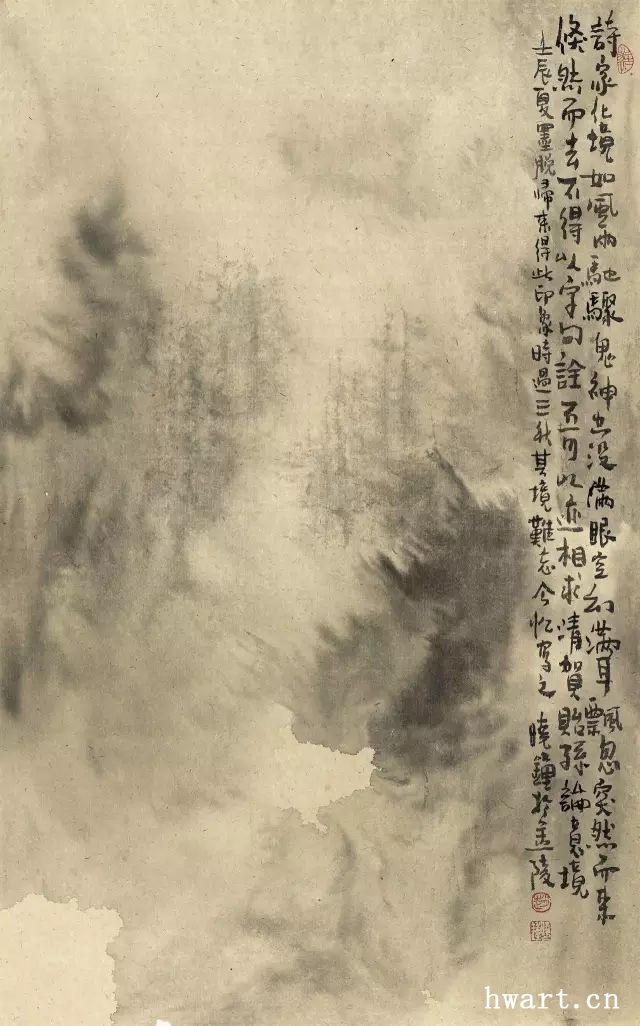 詩家化境如風雨馳驟鬼神出没滿眼空幻滿耳飄忽突然而来
倐然而去不得以字句詮不可以迹相求清賀貽孫論意境
壬辰夏墨脱歸来得此印象時過三秋其境難忘今忆寫之 曉鐘於金陵
hwart.cn